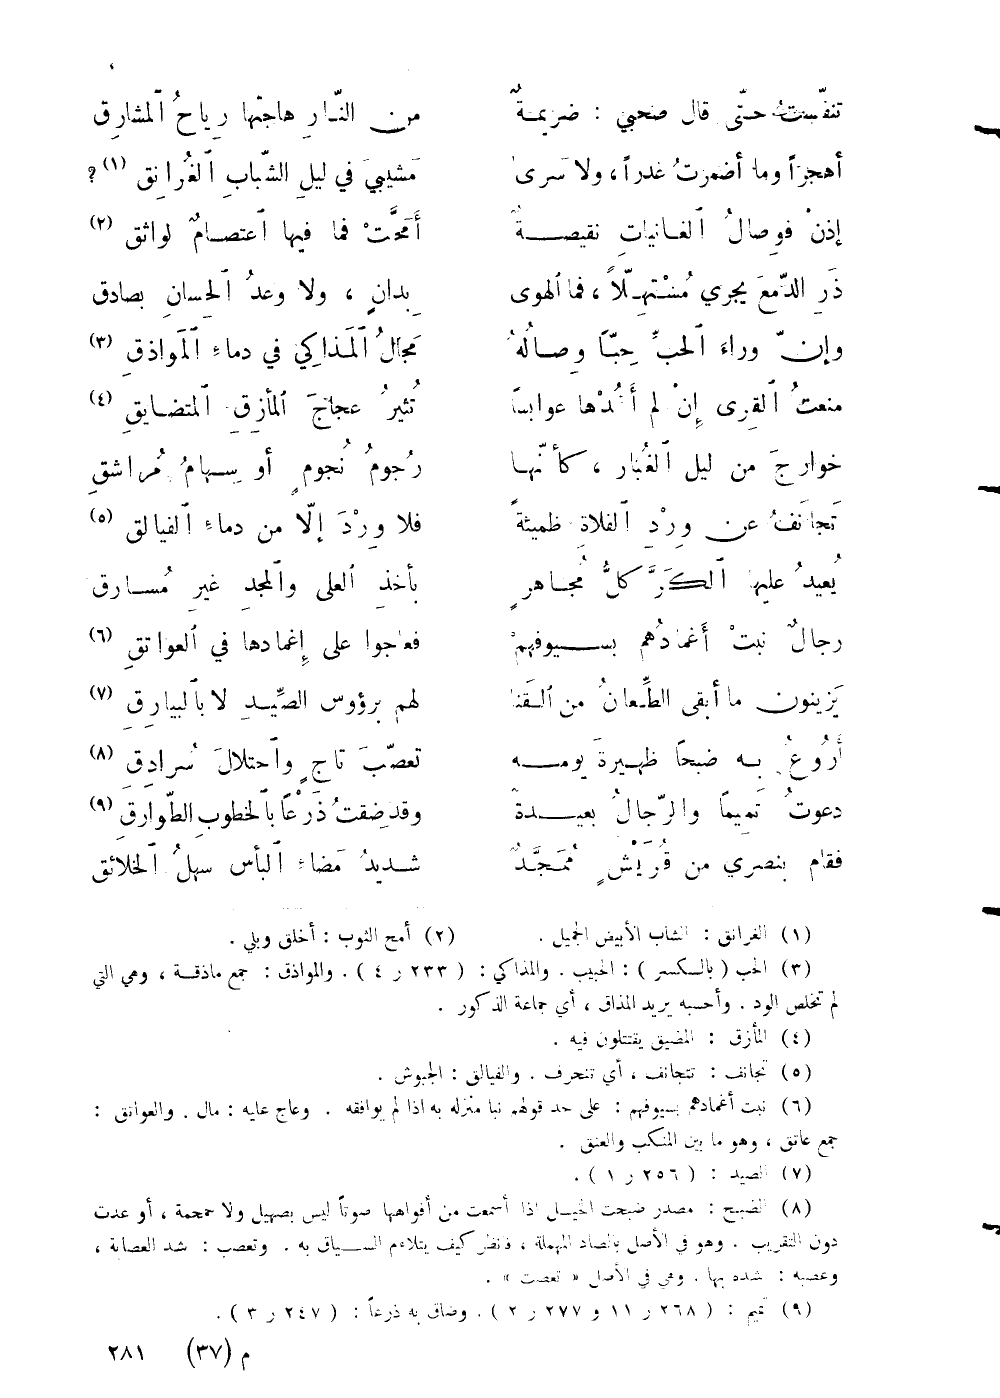 تنفّستُ حتّى قال صحبي : ضريمةٌ من النّارِ هاجتها رياحُ ٱلمشارق
أهجراً وما أضمرتُ غدراً ، ولا سرى مشيبيَ في ليلِ الشّبابِ ٱلغُرانق (١) ؟
إذنْ فوصالُ ٱلغانياتِ نقيصةٌ أَمَحَّتْ فما فيها ٱعتصامٌ لواثق (٢)
ذَرِ الدّمعَ يجري مُسْتهِلّاً ، فما ٱلهوى بِدانٍ ، ولا وعدُ ٱلحِسانِ بصادق
وإنّ وراءَ ٱلحبِّ حِبّاً وِصالُهُ مجالُ ٱلمَذاكي في دماءِ ٱلمَواذقِ (٣)
منعتُ ٱلقِرى إِنْ لم أَقُدْها عوابساً تُثيرُ عجاجَ ٱلمأزِقِ ٱلمتضايقِ (٤)
خوارجَ من ليل ٱلغُبار ، كأنّها رُجومُ نُجومٍ أو سِهامُ مُراشقِ
تَجانَفُ عن وِرْدِ ٱلفلاةِ ظميئةً فلا وِرْدَ إلّا من دماءِ ٱلفيالق (٥)
يُعيدُ عليها ٱلكَرَّ كلُّ مُجاهرٍ بأخذِ ٱلعلى وٱلمجدِ غيرِ مُسارق
رجالٌ نبتْ أَغمادُهم بسيوفهمْ فعاجوا على إِغمادها في ٱلعواتقِ (٦)
يَزينون ما أبقى الطِّعانُ من ٱلقنا لهم برؤوس الصِّيدِ لا بٱلبيارِقِ (٧)
أَرُوعُ به ضبحاً ظهيرةَ يومه تعصّبَ تاجٍ وٱحتلالَ سُرادِقِ (٨)
دعوتُ تميماً والرّجالُ بعيدةٌ وقد ضِقتُ ذَرْعاً بٱلخطوبِ الطّوارقِ (٩)
فقام بنصري من قُرَيْشٍ مُمَجَّدٌ شديدُ مَضاءِ ٱلبأس سهلُ ٱلخلائق
(١) الغرانق : الشاب الأبيض الجميل . (٢) أمح الثوب : أخلق وبلي .
(٣) الحب ( بالكسر ) : الحبيب . والمذاكي : ( ٢٣٣ ر ٤ ) . والمواذق : جمع ماذقة ، وهي التي
لم تخلص الود . وأحسبه يريد المذاق ، أي جماعة الذكور .
(٤) المأزق : المضيق يقتتلون فيه .
(٥) تجانف : تتجانف ، أي تنحرف . والفيالق : الجيوش .
(٦) نبت أغمادهم بسيوفهم : على حد قولهم نبا منزله به اذا لم يوافقه . وعاج عليه : مال . والعواتق :
جمع عاتق ، وهو ما بين المنكب والعنق .
(٧) الصيد : ( ٢٥٦ ر ١ ) .
(٨) الضبح : مصدر ضبحت الخيل اذا أسمعت من أفواهها صوتاً ليس بصهيل ولا حمحمة ، أو عدت
دون التقريب . وهو في الأصل بالصاد المهملة ، فانظر كيف يتلاءم السياق به . وتعصب : شد العصابة ،
وعصبه : شده بها . وهي في الأصل « تعصت » .
(٩) تميم : ( ٢٦٨ ر ١١ و ٢٧٧ ر ٢ ) . وضاق به ذرعاً : ( ٢٤٧ ر ٣ ) .
م (٣٧) ٢٨١